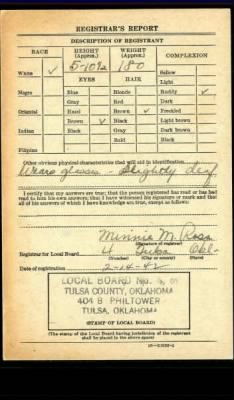 REGISTRAR'S REPORT
DESCRIPTION OF REGISTRANT
RACE HEIGHT (Approx.) WEIGHT (Approx.) COMPLEXION
White ✓ 5-10½ 180 Sallow
EYES HAIR Light
Negro Blue Blonde Ruddy ✓
Gray Red Dark
Oriental Hazel Brown ✓ Freckled
Brown ✓ Black Light brown
Indian Black Gray Dark brown
Bald Black
Filipino
Other obvious physical characteristics that will aid in identification
Wears glasses - Slightly deaf
I certify that my answers are true; that the person registered has read or has had
read to him his own answers; that I have witnessed his signature or mark and that
all of his answers of which I have knowledge are true, except as follows:
Minnie M. Ross
(Signature of registrar)
Registrar for Local Board 4 Tulsa Okl-
(Number) (City or county) (State)
Date of registration 2-14-42
LOCAL BOARD No.
TULSA COUNTY, OKLAHOMA
404 B PHILTOWER
TULSA, OKLAHOMA
(STAMP OF LOCAL BOARD)
(The stamp of the Local Board having jurisdiction of the registrant
shall be placed in the above space)